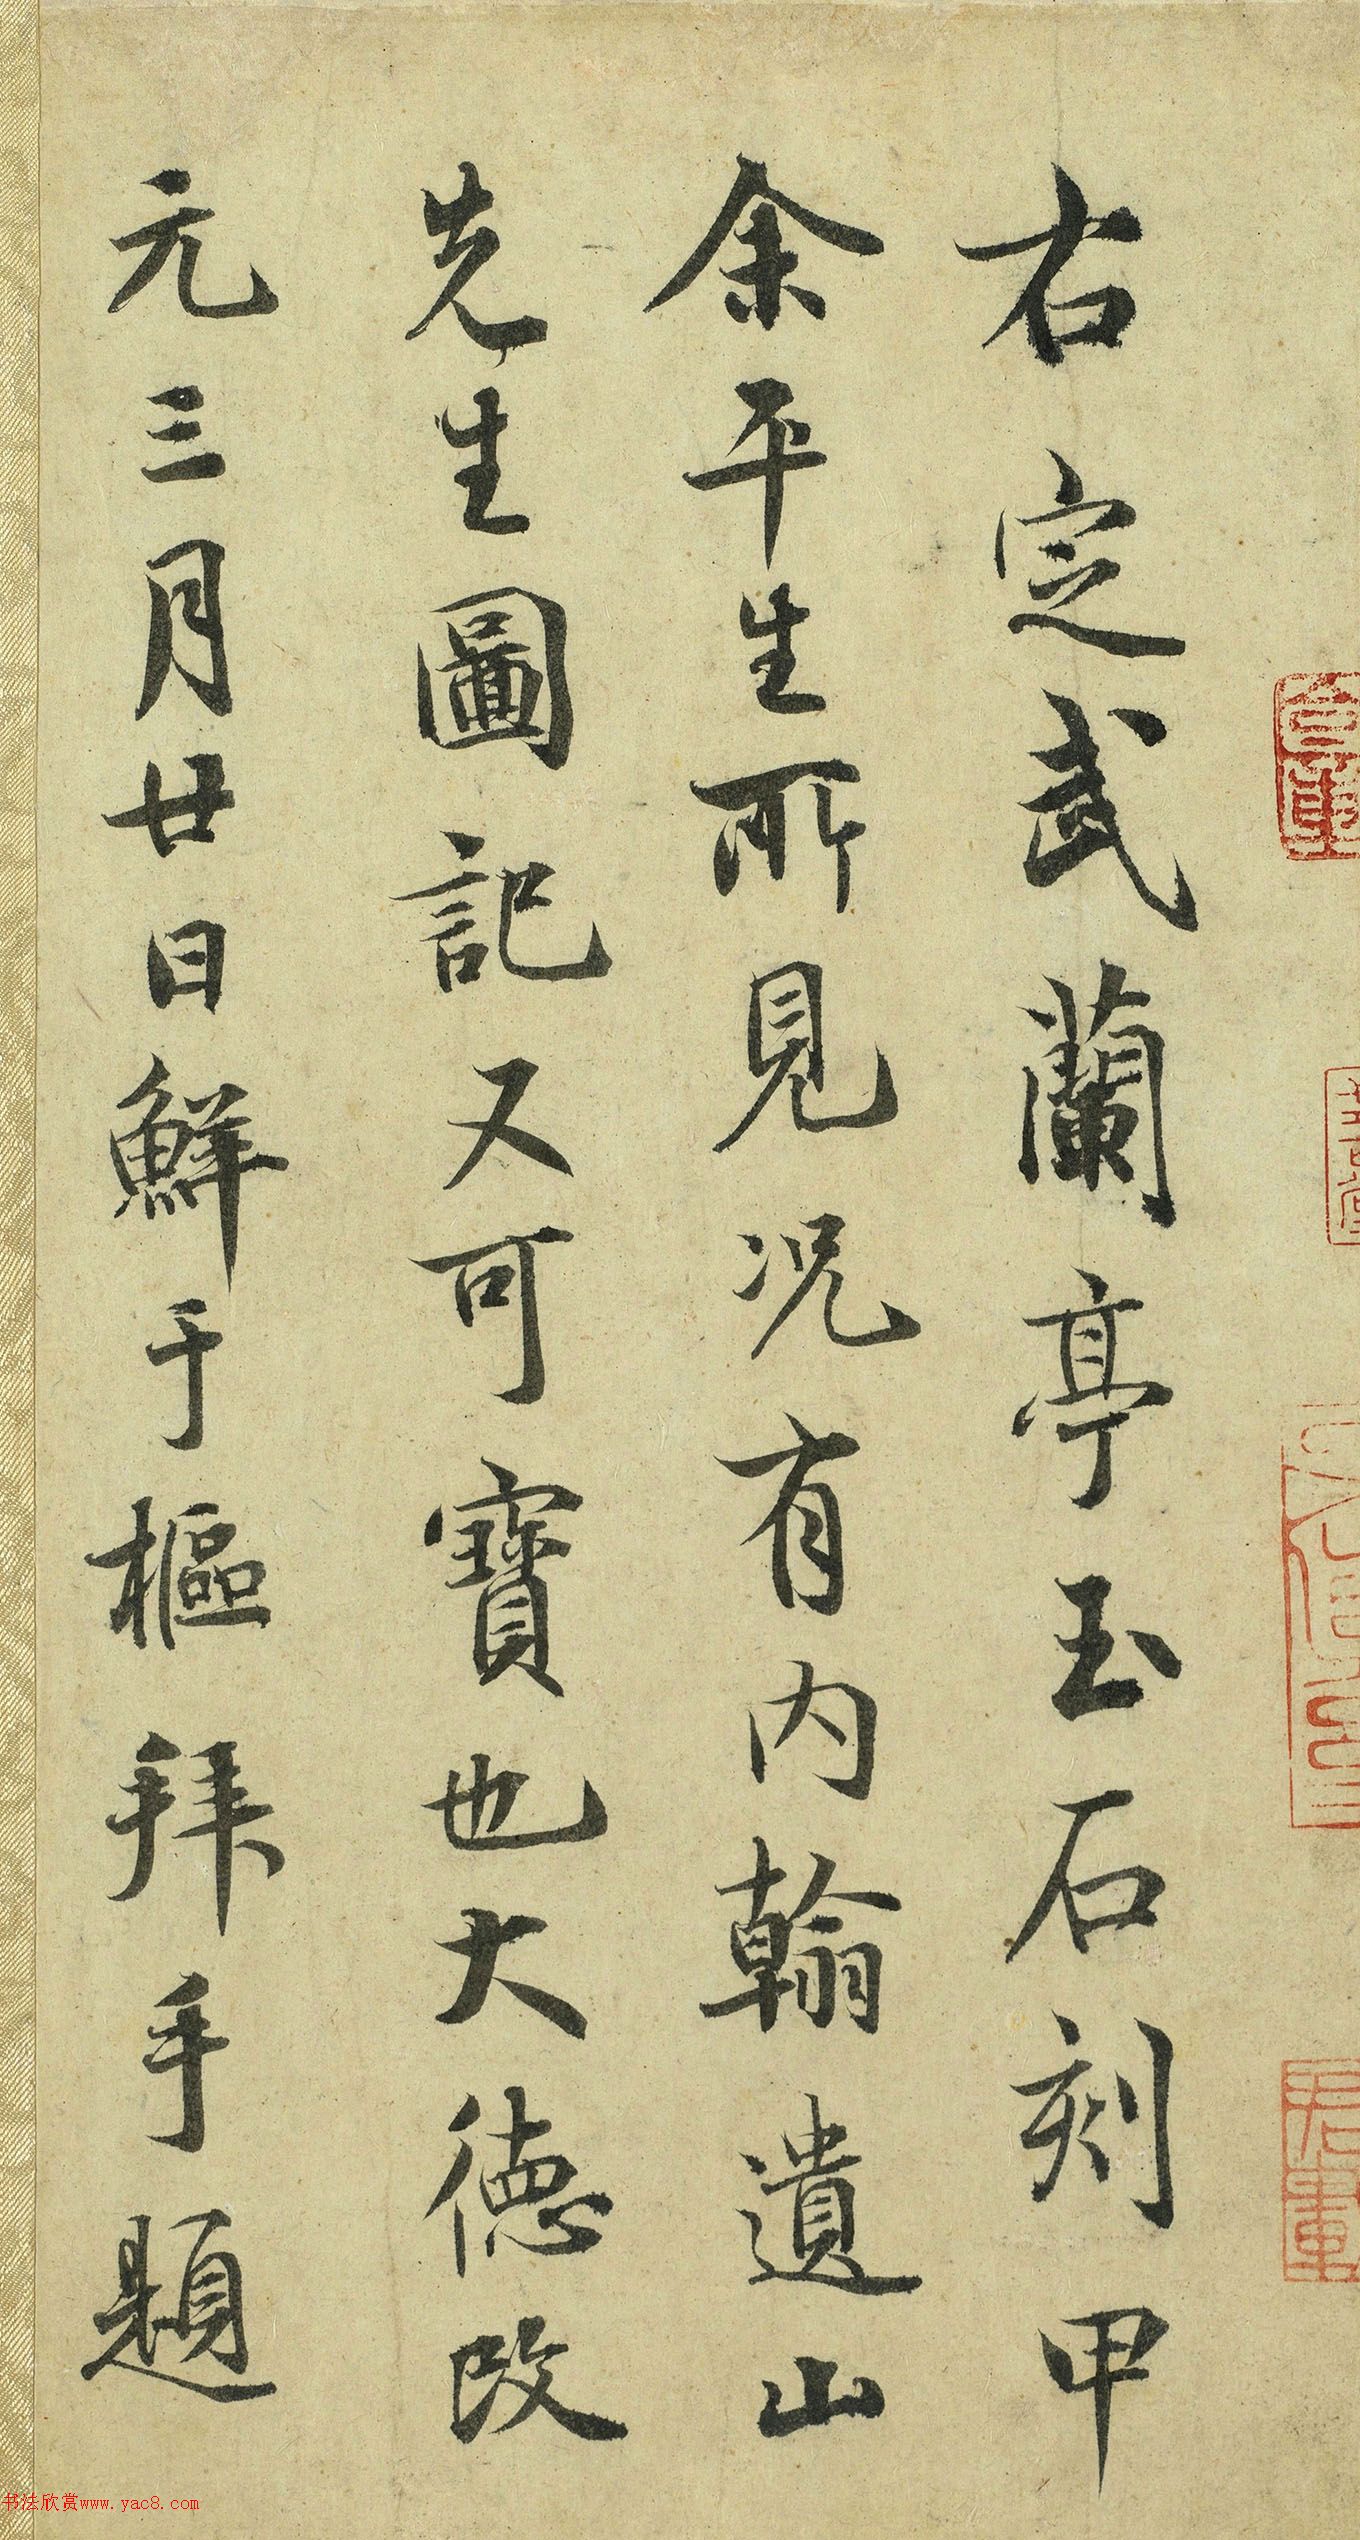 右定武蘭亭玉石刻甲
余平生所見況有内翰遺山
先生圖記又可寶也大德改
元三月廿日鮮于樞拜手題
书法欣赏www.yac8.com